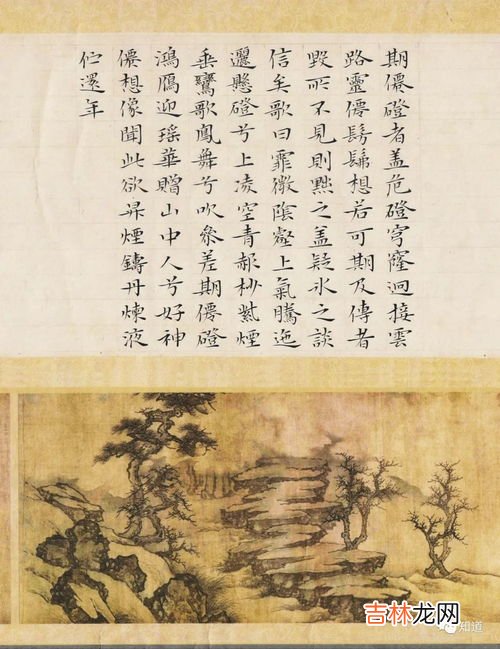 期僊磴者盖危磴穹窿迥接雲
路靈僊髣髴想若可期及傳者
毀所不見則黜之盖疑氷之談
信矣歌曰霏微陰壑上氣騰迤
邐懸磴兮上凌空青赮杪紫煙
垂鸞歌鳳舞兮吹參差期僊磴
鴻鴈迎瑶華贈山中人兮好神
僊想像聞此欲昇煙鑄丹煉液
伫還年
吉林龙网
知道